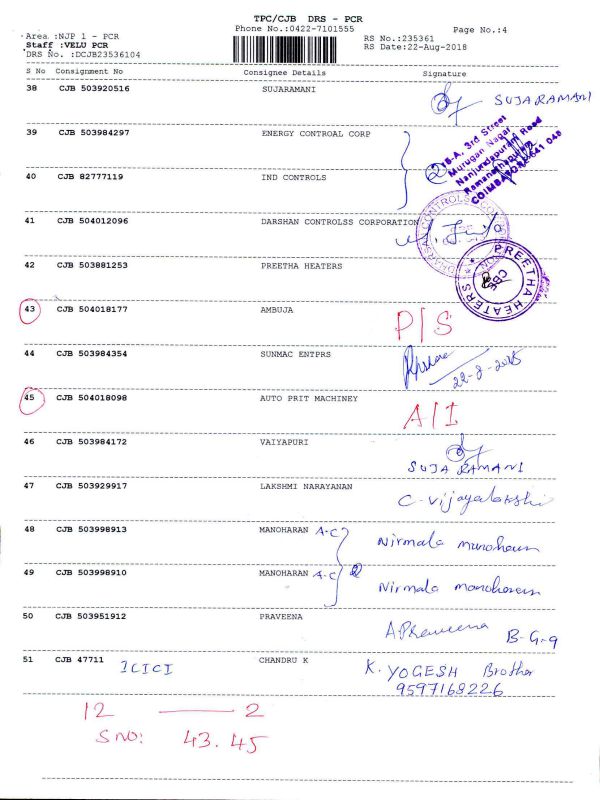 TPC/CJB DRS - PCR
Phone No.:0422-7101555
Page No.:4
Area :NJP 1 - PCR
RS No.:235361
Staff :VELU PCR
RS Date:22-Aug-2018
DRS No. :DCJB23536104
S No Consignment No Consignee Details Signature
38 CJB 503920516 SUJARAMANI SUJARAMANI
39 CJB 503984297 ENERGY CONTROAL CORP
15-A, 3rd Street
Murugan Nagar
Nanjundapuram Road
Ramanathapuram
COIMBATORE-641 045
40 CJB 82777119 IND CONTROLS
2
41 CJB 504012096 DARSHAN CONTROLSS CORPORATION
42 CJB 503881253 PREETHA HEATERS
PREETHA HEATERS
CBE
43 CJB 504018177 AMBUJA P/S
44 CJB 503984354 SUNMAC ENTPRS
22-8-2018
45 CJB 504018098 AUTO PRIT MACHINEY A/I
46 CJB 503984172 VAIYAPURI
SUJA RAMANI
47 CJB 503929917 LAKSHMI NARAYANAN C. Vijayalakshi
48 CJB 503998913 MANOHARAN A-C Nirmala manoharan
49 CJB 503998910 MANOHARAN A-C 2 Nirmala manoharan
50 CJB 503951912 PRAVEENA A Praveena B-G-9
51 CJB 47711 ICICI CHANDRU K K. YOGESH Brother
9597168226
12 — 2
S NO: 43.45